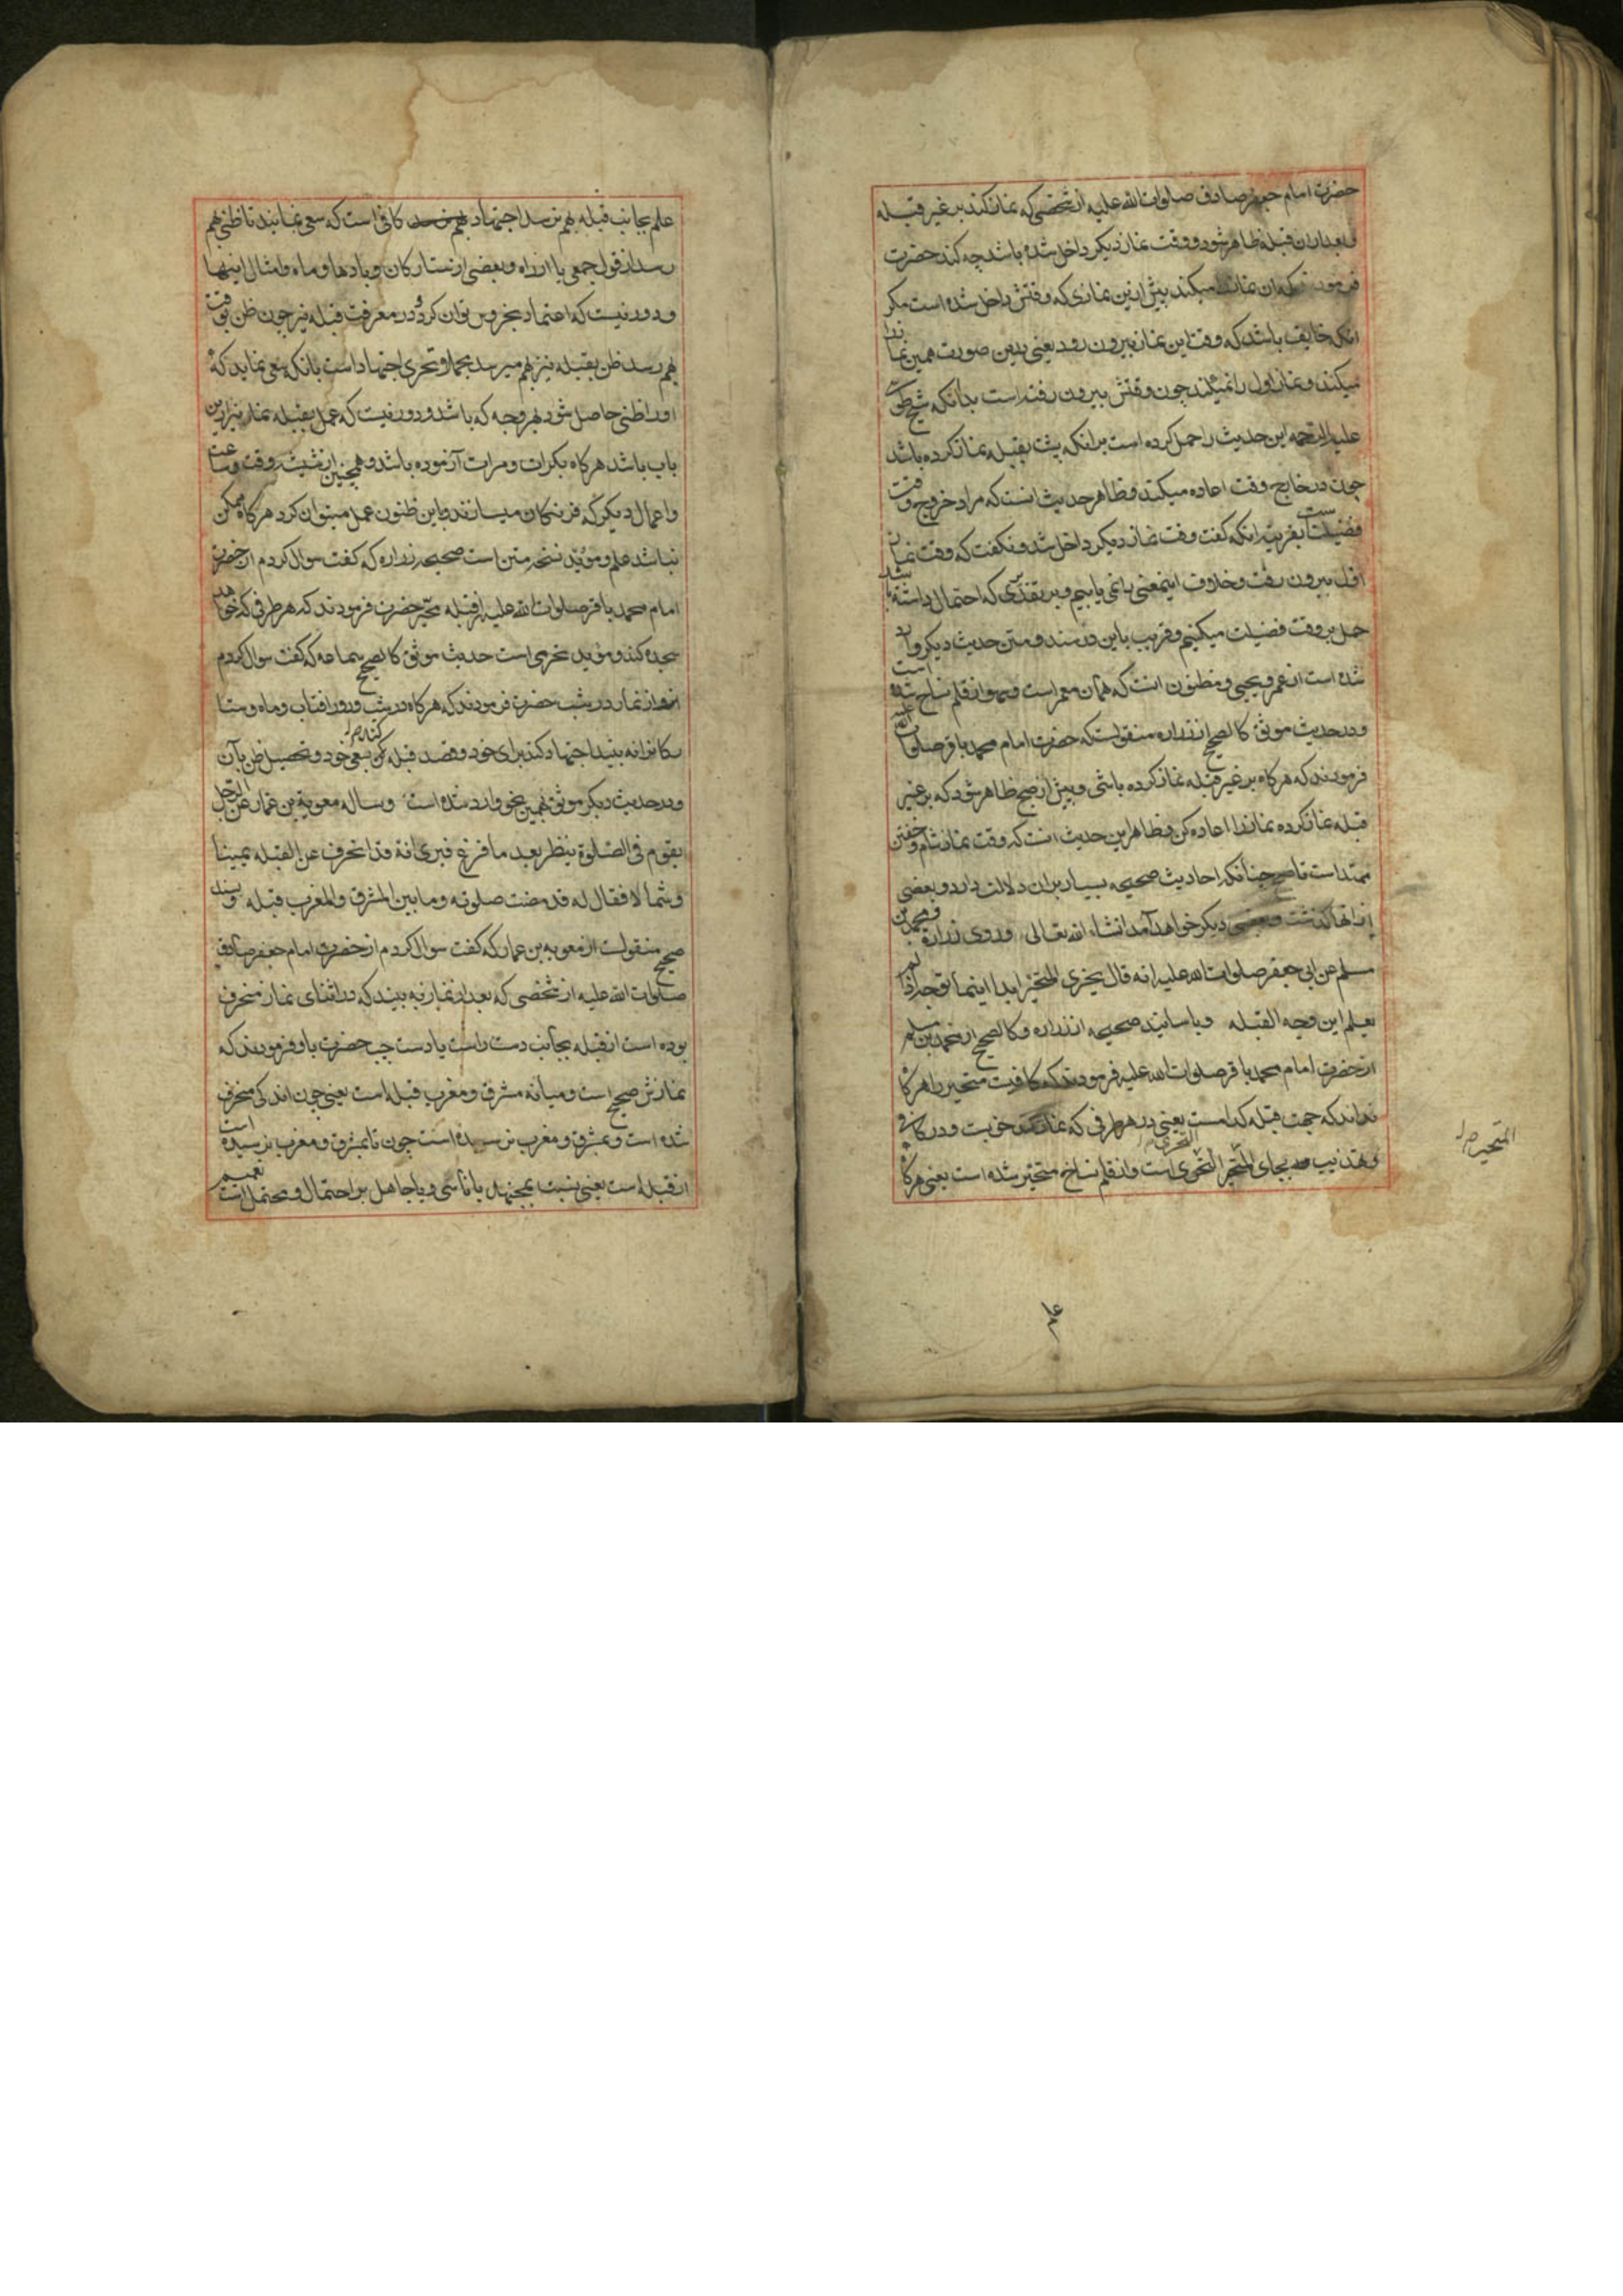 حضرت امام جعفر صادق صلوات الله عليه از شخصى كه نماز كند بر غير قبله
و بعد از ان قبله ظاهر شود و وقت نماز ديكر داخل شده باشد چه كند حضرت
فرمودند كه ان نماز را ميكند پيش ازين نمازى كه وقتش داخل شده است مكر
انكه خايف باشد كه وقت اين نماز بيرون رود يعنى بدين صورت همين نماز را
ميكند و نماز اول را نميكند چون وقتش بيرون رفته است بدانكه شيخ طوسى
عليه الرحمه اين حديث را حمل كرده است برانكه پشت بقبله نماز كرده باشد
چون در خارج وقت اعاده ميكند و ظاهر حديث انست كه مراد خروج وقت
فضيلتست بقرينه انكه كفت وقت نماز ديكر داخل شد و نكفت كه وقت نماز
اول بيرون رفت و خلاف اينمعنى را نمى يابيم و بر تقديرى كه احتمال داشته باشد
حمل بر وقت فضيلت ميكنيم و قريب باين در سند و متن حديث ديكر وارد
شده است از عمرو بن يحيى و مظنون انست كه همان معمر است و سهو از قلم نساخ شده است
و در حديث موثق كالصحيح از زراره منقولست كه حضرت امام محمد باقر صلوات الله عليه
فرمودند كه هركاه بر غير قبله نماز كرده باشى و پيش از صبح ظاهر شود كه بر غير
قبله نماز كرده نماز را اعاده كن و ظاهر اين حديث انست كه وقت نماز شام و خفتن
ممتد است تا صبح چنانكه احاديث صحيحه بسيار بران دلالت دارد و بعضى
از انها كذشت و بعضى ديكر خواهد آمد انشاء الله تعالى و روى زرارة و محمد بن
مسلم عن ابى جعفر صلوات الله عليه انه قال يجزى المتحير ابدا اينما توجه اذا لم
يعلم اين وجه القبله و باسانيد صحيحه از زراره و كالصحيح از محمد بن مسلم
از حضرت امام محمد باقر صلوات الله عليه فرمودند كه كافيست متحير را هر كاه
نداند كه جهت قبله كدامست يعنى در هر طرفى كه نماز كند خوبست و در كافى
و تهذيب بجاى المتحير التحرى است و از قلم نساخ متحير شده است يعنى هركاه
التحرى
المتحير
علم
علم بجانب قبله بهم نرسد اجتهاد بهم نرسد كافى است كه سعى نمايند تا ظنى بهم
رسد از قول جمعى يا از راه و بعضى از ستاركان و بادها و ماه و امثال اينها
و دور نيست كه اعتماد بخروس توان كرد و در معرفت قبله نيز چون ظن بوقت
بهم رسد ظن بقبله نيز بهم ميرسد مجملا و تحرى اجتهاد است بانكه سعى نمايد كه
او را ظنى حاصل شود بهر وجه كه باشد و دور نيست كه عمل بقبله نما نيز ازين
باب باشد هركاه بكرات و مرات آزموده باشد و همچنين از شيشه وقت و ساعت
و اعمال ديكر كه فرنكان ميسازند و باين ظنون عمل ميتوان كرد هركاه ممكن
نباشد علم و مويد نسخه متن است صحيحه زراره كه كفت سوال كردم از حضرت
امام محمد باقر صلوات الله عليه از قبله متحير حضرت فرمودند كه هر طرفى كه خواهد
سجده كند و مويد تحرى است حديث موثق كالصحيح سماعه كه كفت سوال كردم
از نماز در شب حضرت فرمودند كه هركاه در شب و روز افتاب و ماه و ستا
ركان را نه بينيد اجتهاد كند براى خود و قصد قبله كن بسعى خود و تحصيل ظن بآن
و در حديث ديكر موثق بهمين نحو وارد شده است و ساله معوية بن عمار عن الرجل
يقوم فى الصلوة ينظر بعد ما فرغ فيرى انه قد انحرف عن القبله يمينا
و شمالا فقال له قد مضت صلوته و ما بين المشرق و المغرب قبله و بسند
صحيح منقولست از معويه بن عمار كه كفت سوال كردم از حضرت امام جعفر صادق
صلوات الله عليه از شخصى كه بعد از نماز به بيند كه در اثناى نماز منحرف
بوده است از قبله بجانب دست راست يا دست چپ حضرت باو فرمودند كه
نمازش صحيح است و ميانه مشرق و مغرب قبله است يعنى چون اندكى منحرف
شده است و بمشرق و مغرب نرسيده است چون تا بمشرق و مغرب نرسيده است
از قبله است يعنى نسبت بمجتهد يا ناسى و يا جاهل بر احتمال و محتملست